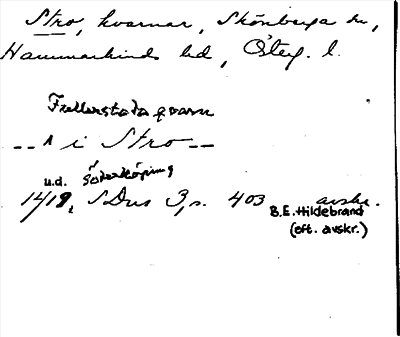 Stro, kvarnar, Skönberga sn,
Hammarkinds hd, Östeg. l.
Fillerstada qvarn
-- ʌ i Stro --
u.d. Söderköping
1419, SDns 3, s. 403 avskr.
B.E. Hildebrand
(oft. avskr.)